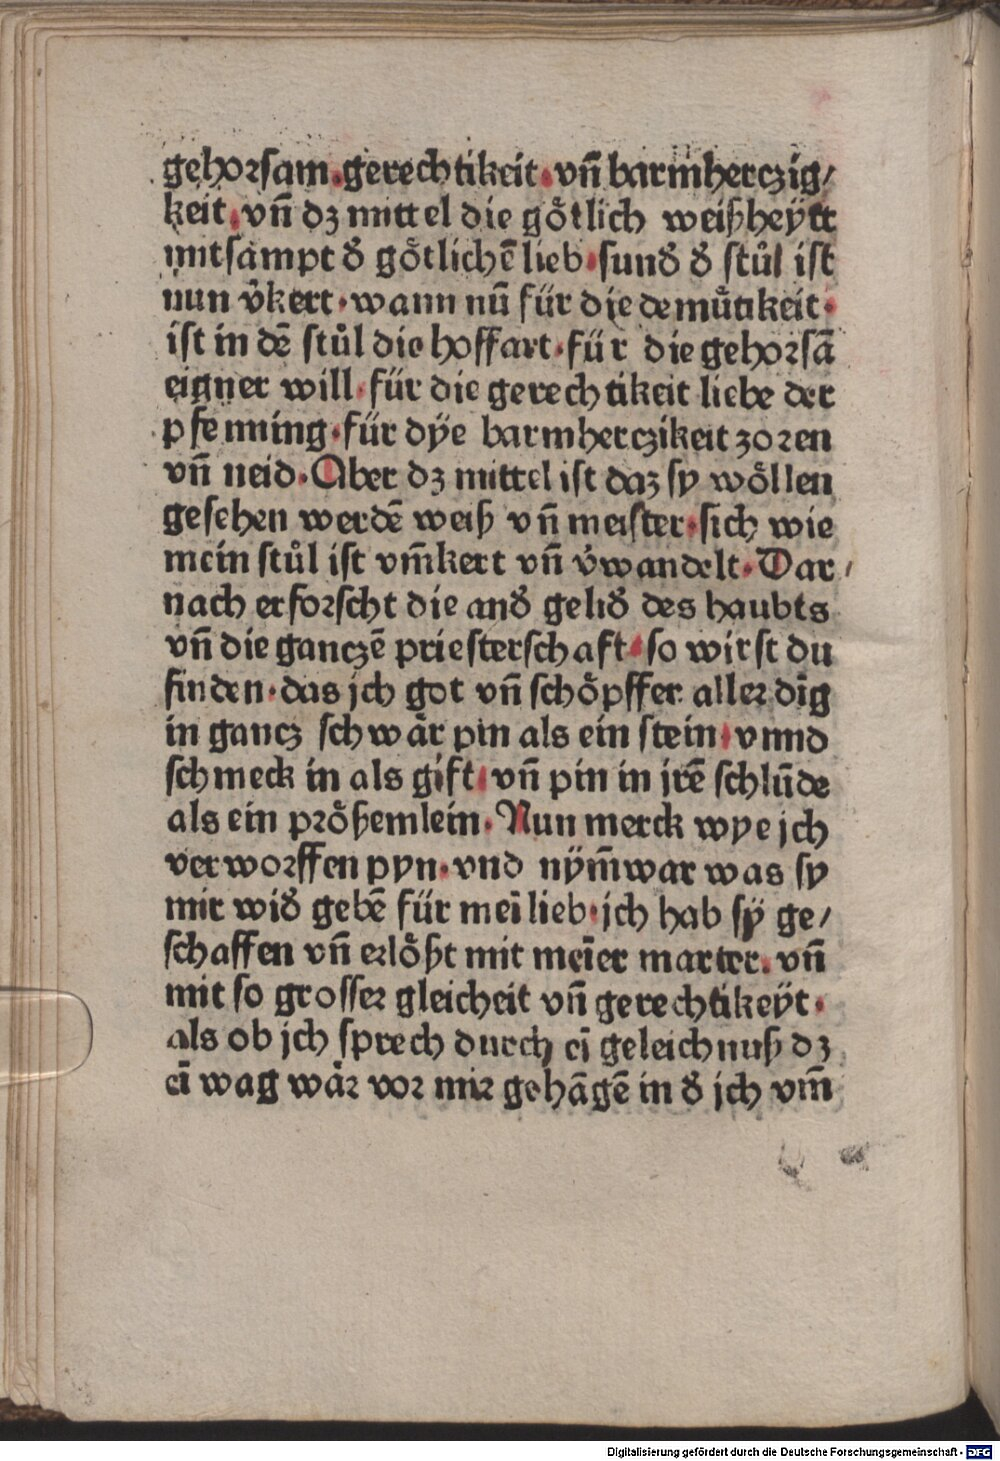 gehorsam·gerechtikeit·vñ barmherczig/
keit·vñ dz mittel die goͤtlich weißheÿtt
mitsampt d̕ goͤtlichē lieb·sund̕ d̕ stůl ist
nun v̕kert·wann nū für die demuͤtikeit·
ist in dē stůl die hoffart·für die gehorsā
eigner will·für die gerechtikeit liebe der
pfenning·für dÿe barmherczikeit zoren
vñ neid·Aber dz mittel ist daz sy woͤllen
gesehen werdē weiß vñ meister·sich wie
mein stůl ist vm̄kert vñ v̕wandelt·Dar/
nach erforscht die and̕ gelid̕ des haubts
vñ die ganczē priesterschaft·so wirst du
finden·das jch got vñ schoͤpffer aller dīg
in gancz schwaͤr pin als ein stein·vnnd
schmeck in als gift·vñ pin in jrē schlūde
als ein proͤßemlein·Nun merck wye jch
verworffen pyn·vnd nÿm̄war was sy
mir wid̕ gebē für meī lieb·jch hab sÿ ge/
schaffen vñ erloͤßt mit meīer marter·vñ
mit so grosser gleicheit vñ gerechtikeÿt·
als ob jch sprech durch eī geleichnuß dz
eī wag waͤr vor mir gehāgē in d̕ jch vm̄
Digitalisierung gefördert durch die Deutsche Forschungsgemeinschaft - DFG